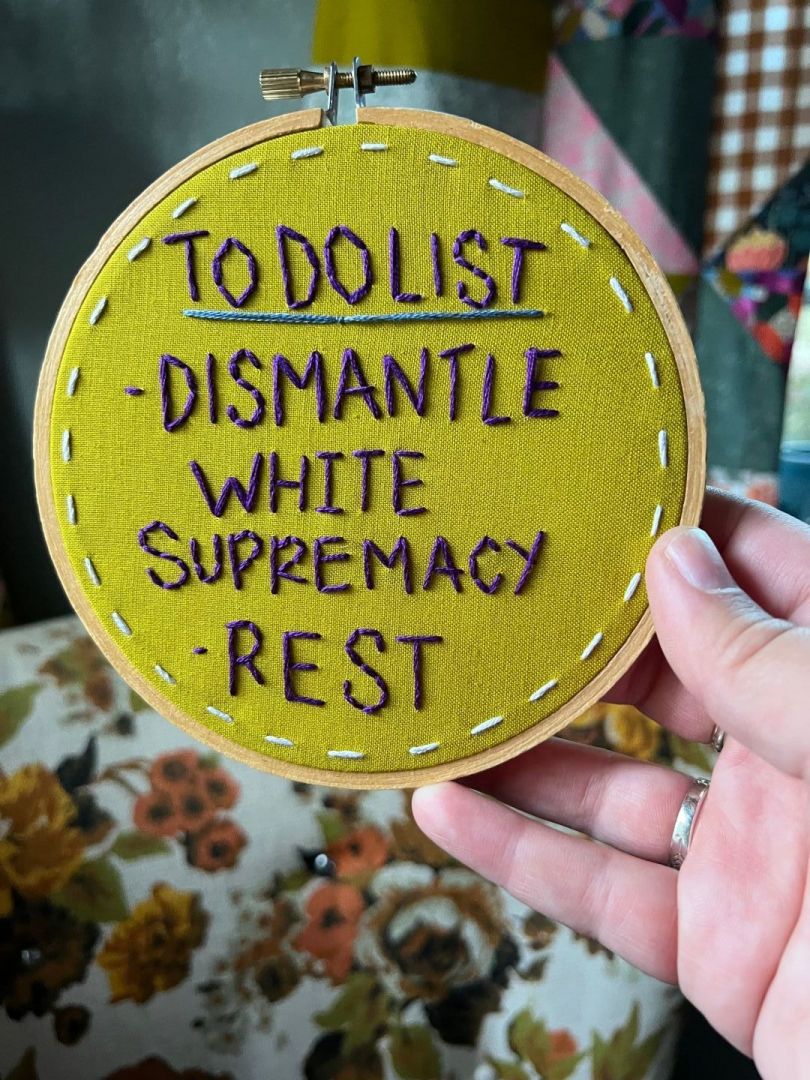 TO DO LIST
- DISMANTLE
WHITE
SUPREMACY
- REST